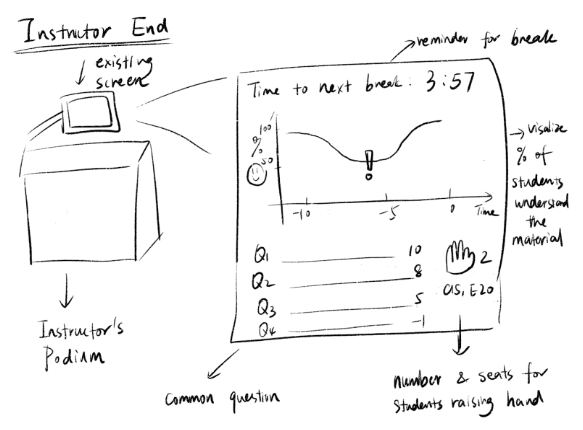 Instructor End
existing
screen
reminder for break
Time to next break: 3:57
100
%
50
!
-10
-5
0
Time
→ visalize
% of
students
understand
the
material
Q1 10
Q2 8
Q3 5
Q4 -1
2
C15, E20
Instructor's
Podium
Common question
number & seats for
students raising hand